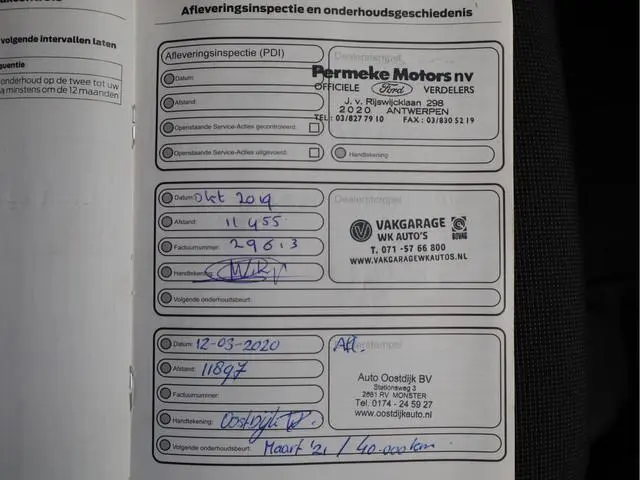 Afleveringsinspectie en onderhoudsgeschiedenis
volgende intervallen laten
quentie
onderhoud op de twee tot uw
a minstens om de 12 maanden
Afleveringsinspectie (PDI)
Dealerstempel
Datum:
Afstand:
Openstaande Service-Acties gecontroleerd:
Openstaande Service-Acties uitgevoerd:
Permeke Motors nv
OFFICIELE Ford VERDELERS
J. v. Rijswijcklaan 298
2020 ANTWERPEN
TEL: 03/827 79 10 FAX: 03/830 52 19
Handtekening:
Datum: Okt 2019
Afstand: 11455
Factuurnummer: 29613
Handtekening:
Volgende onderhoudsbeurt:
Dealerstempel
VAKGARAGE
WK AUTO'S
BOVAG
T. 071 -57 66 800
WWW.VAKGARAGEWKAUTOS.NL
Datum: 12-03-2020
Afstand: 11897
Factuurnummer:
Handtekening: Oostdijk
Volgende onderhoudsbeurt: Maart '21 / 40.000km.
Afl.
Dealerstempel
Auto Oostdijk BV
Stationsweg 3
2681 RV MONSTER
Tel. 0174 - 24 59 27
www.oostdijkauto.nl